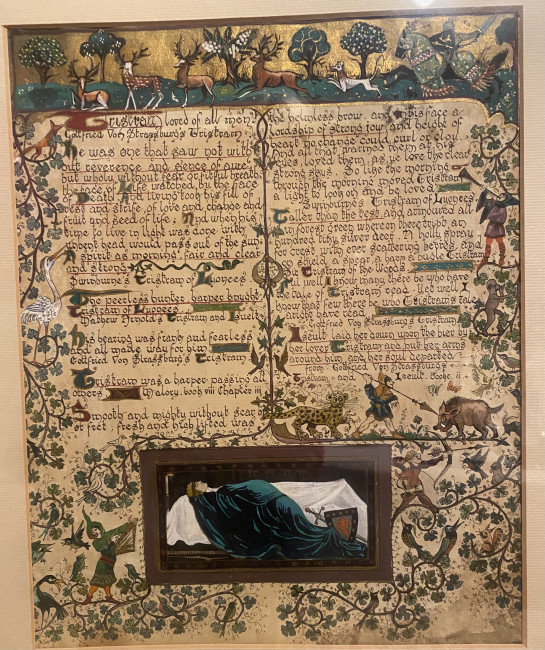 Tristram loved of all men
Gottfried Von Strassburg's Tristram.
He was one that saw not with-
out reverence and sence of awe.
but wholly without fear or fitful breath
the face of Life watched by the face
of Death. And living took his fill of
rest and strife of love and change and
fruit and seed of life. And when his
time to live in light was done with
unbent head would pass out of the sun.
A spirit as morning fair and clear
and strong.
Swinburne's Tristram of Lyoness
The peerless hunter, harper, knight.
Tristram of Lyoness.
Mathew Arnold's Tristram and Iseult
his bearing was fearn and fearless
and all made way for him
Gottfried Von Strassburg's Tristram.
Tristram was a harper passing all
others. Malory. book viii Chapter
Smooth and mighty without scar
or fret, fresh and high lifted was
the helmless brow. And his face a
lordship of strong joy and height of
heart no chance could curb or cloy.
And all that warmed them at his
eyes loved them as ye love the clear
strong skys. So like the morning
through the morning moved Tristram
a light to look on and be loved
Swinburne's Tristram of Lyoness
Taller than the rest and armoured all
in forest green whereon there tript an
hundred tiny silver deer. And holly spray
for crest with ever scattering berries, and
on shield a spear a harp a bugle Tristram
Tristram of the Woods
Full well I know many there be who have
the tale of Tristram read. Yet well I
know that few there be who Tristram's tale
aright have read.
Gottfried Von Strassburg's Tristram.
Iseult laid her down upon the bier by
her lover Tristram and put her arms
around him, and her soul departed
from Gottfried Von Strassburg's
Tristram and Iseult Book